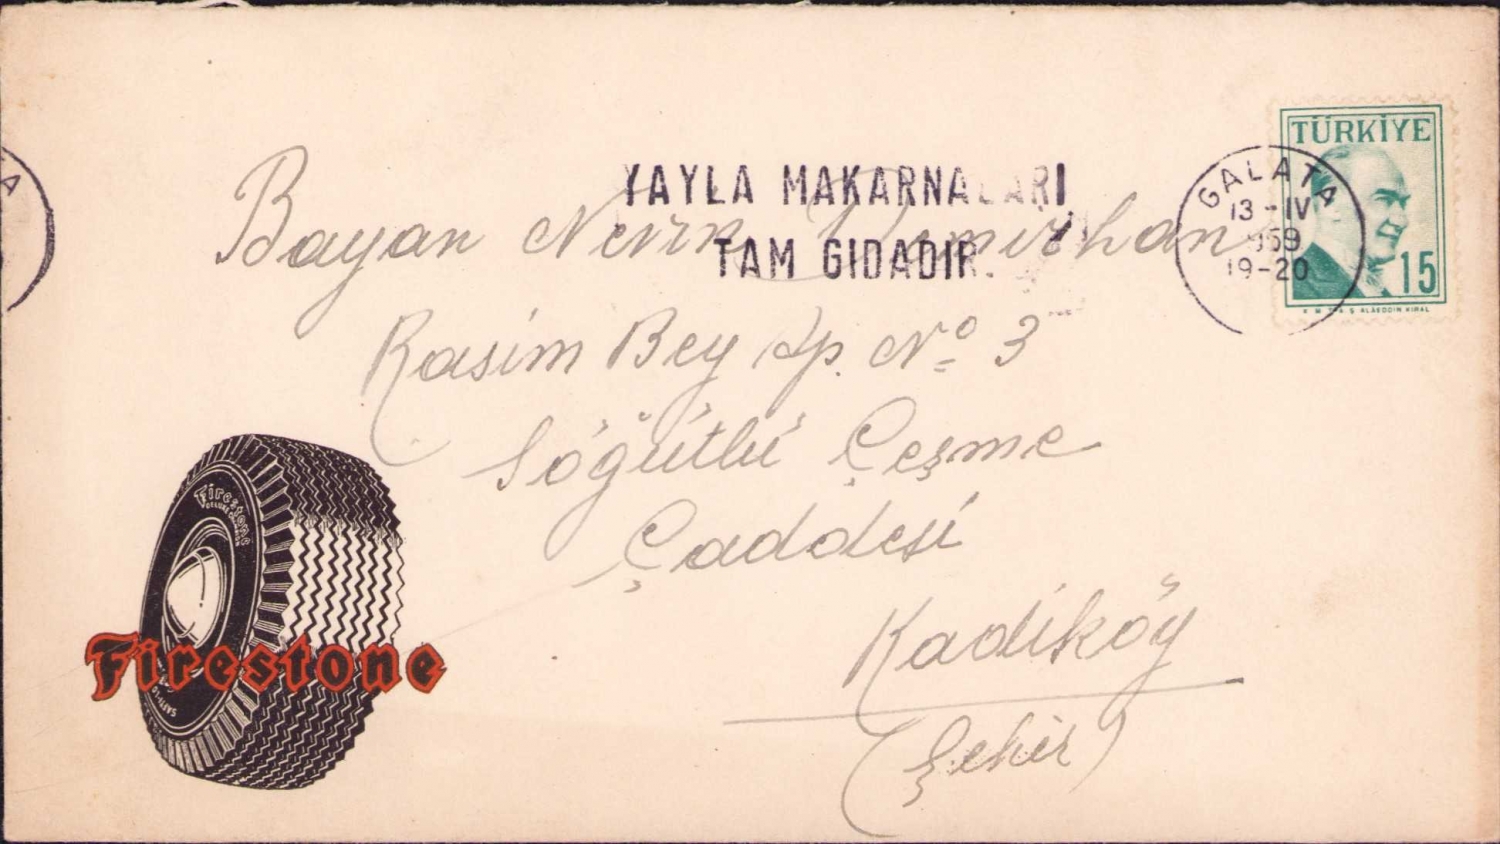 YAYLA MAKARNALARI
TAM GIDADIR.
TÜRKİYE
15
GALATA
13-IV
959
19-20
Bayan Nevin
Rasim Bey Ap. Nº 3
Söğütlü Çeşme
Caddesi
Kadıköy
(Şehir)
Firestone
Firestone